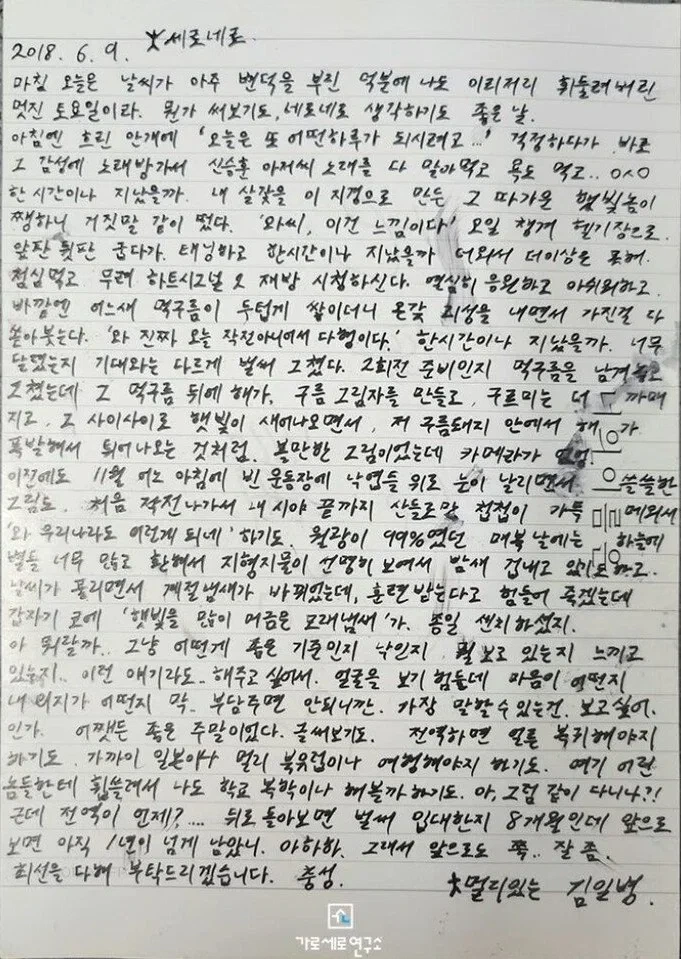 2018. 6. 9.
세로네로.
마침 오늘은 날씨가 아주 변덕을 부린 덕분에 나도 이리저리 휘둘려버린
멋진 토요일이라. 뭔가 써보기도, 네로네로 생각하기도 좋은 날.
아침엔 흐린 안개에 '오늘은 또 어떤하루가 되시려고...' 걱정하다가 바로
그 감성에 노래방가서 신승훈 아저씨 노래를 다 말아먹고 욕도 먹고..
한시간이나 지났을까. 내 살갗을 이 지경으로 만든 그 따가운 햇빛놈이
쨍하니 거짓말 같이 떴다. '와씨, 이건 느낌이다' 오일 챙겨 헬기장으로.
앞판 뒷판 굽다가. 태닝하고 한시간이나 지났을까 더워서 더이상은 못해.
점심먹고 무려 하트시그널 2 재방 시청하신다. 열심히 응원하고 아쉬워하고.
바깥엔 어느새 먹구름이 두텁게 쌓이더니 온갖 괴성을 내면서 가진걸 다
쏟아붓는다. '와 진짜 오늘 작전아니어서 다행이다.' 한시간이나 지났을까. 너무
달랬는지 기대와는 다르게 벌써 그쳤다. 2회전 준비인지 먹구름을 남겨놓고
그쳤는데 그 먹구름 뒤에 해가, 구름 그림자를 만들고, 구르미는 더 까매
지고, 그 사이사이로 햇빛이 새어나오면서, 저 구름돼지 안에서 해가
폭발해서 튀어나오는 것처럼. 볼만한 그림이었는데 카메라가 없엉
이전에도 11월 어느 아침에 빈 운동장에 낙엽들 위로 눈이 날리면서 쓸쓸한
그림도, 처음 작전나가서 내 시야 끝까지 산들로만 첩첩이 가득 메워서
'와 우리나라도 이렇게 되네' 하기도. 월광이 99%였던 매복 날에는 하늘에
별들 너무 많고 환해서 지형지물이 선명히 보여서 밤새 겁내고 있기도하고.
날씨가 풀리면서 계절냄새가 바뀌었는데, 훈련 받는다고 힘들어 죽겠는데
갑자기 코에 '햇빛을 많이 머금은 모래냄새'가. 종일 센치하셨지.
아 뭐랄까.. 그냥 어떤게 좋은 기준인지 낙인지 뭘 보고 있는지 느끼고
있는지.. 이런 얘기라도.. 해주고 싶어서. 얼굴을 보기 힘든데 마음이 어떤지
내 의지가 어떤지 막.. 부담주면 안되니깐. 가장 말할 수 있는건. 보고싶어.
인가. 어쨌든 좋은 주말이었다. 글써보기도. 전역하면 얼른 복귀해야지
하기도. 가까이 일본이나 멀리 북유럽이나 여행해야지 하기도. 여기 어린
놈들한테 휩쓸려서 나도 학교 복학이나 해볼까 하기도. 아, 그럼 같이 다니나?!
근데 전역이 언제?.... 뒤로 돌아보면 벌써 입대한지 8개월인데 앞으로
보면 아직 1년이 넘게 남았니. 아하하. 그래서 앞으로도 쭉.. 잘 좀.
최선을 다해 부탁드리겠습니다. 충성.
멀리있는 김일병.
가로세로연구소